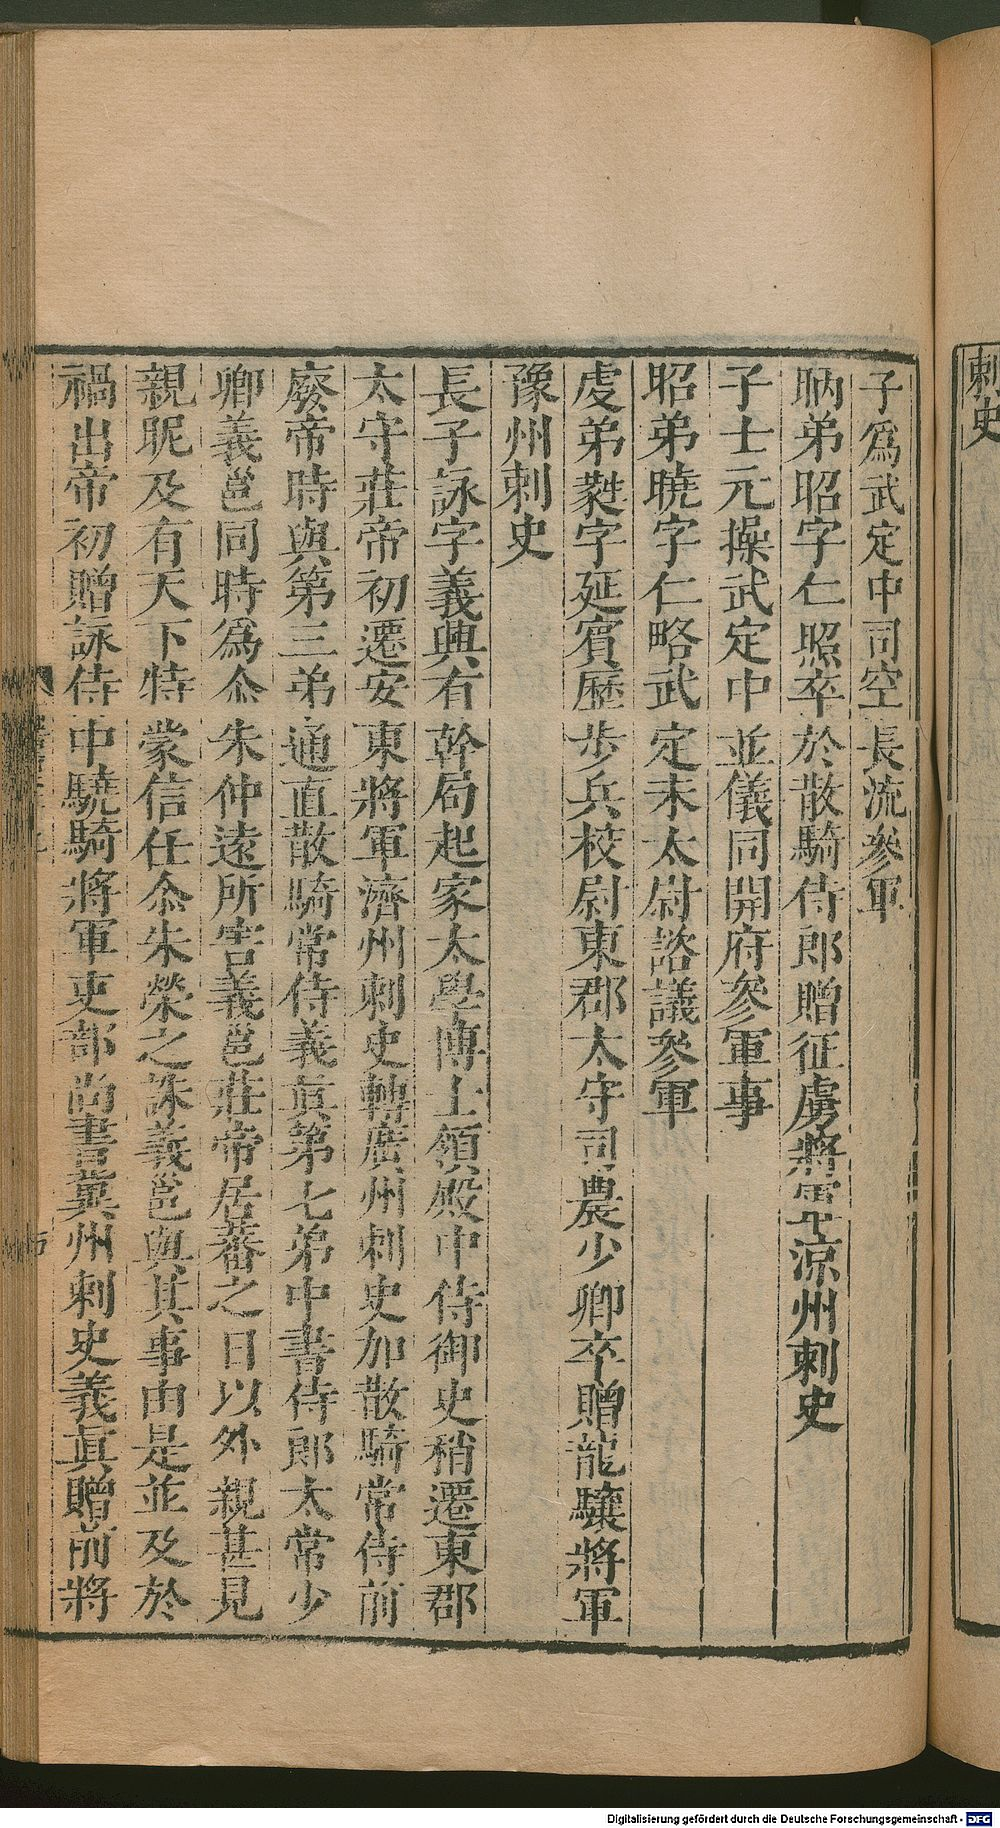 刺史
子爲武定中司空長流參軍
昞弟昭字仁照卒於散騎侍郎贈征虜將軍涼州刺史
子士元操武定中並儀同開府參軍事
昭弟曉字仁略武定末太尉諮議參軍
虔弟㽔字延賓歷步兵校尉東郡太守司農少卿卒贈龍驤將軍
豫州刺史
長子詠字義興有幹局起家太學博士領殿中侍御史稍遷東郡
太守莊帝初遷安東將軍濟州刺史轉廣州刺史加散騎常侍前
廢帝時與第三弟通直散騎常侍義眞第七弟中書侍郎太常少
卿義邕同時爲尒朱仲遠所害義邕莊帝居蕃之日以外親甚見
親昵及有天下特蒙信任尒朱榮之誅義邕與其事由是並及於
禍出帝初贈詠侍中驍騎將軍吏部尚書冀州刺史義眞贈前將
Digitalisierung gefördert durch die Deutsche Forschungsgemeinschaft - DFG